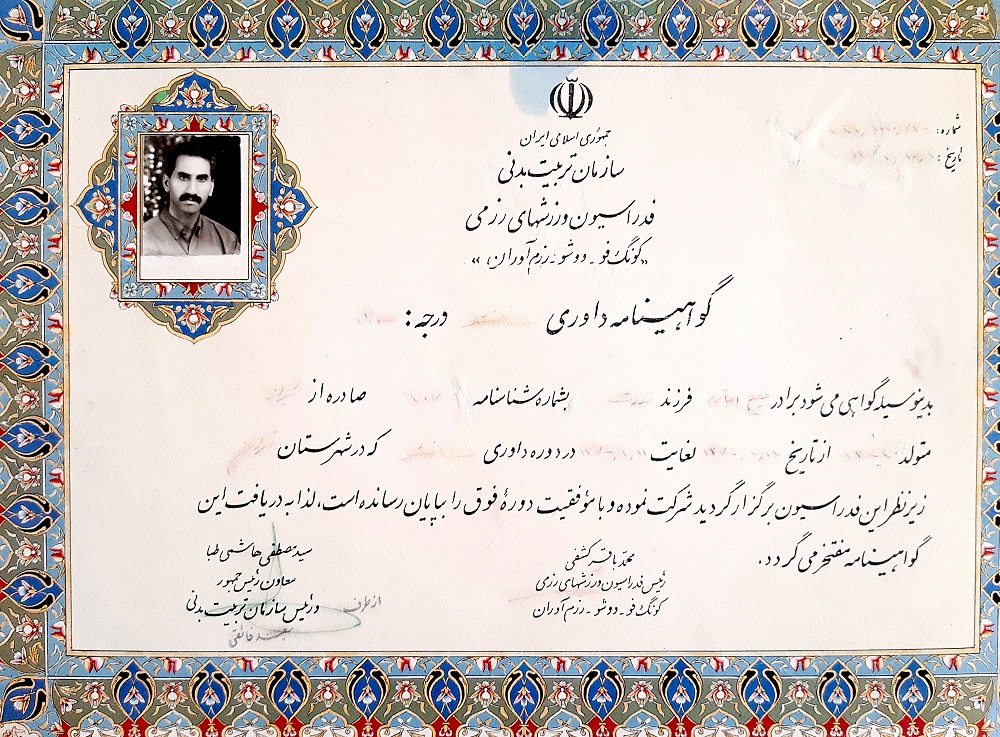 شماره:
تاریخ:
جمهوری اسلامی ایران
سازمان تربیت بدنی
فدراسیون ورزشهای رزمی
«کونگ فو - ووشو - رزم آوران»
گواهینامه داوری درجه:
بدینوسیله گواهی می شود برادر فرزند بشماره شناسنامه صادره از
متولد از تاریخ لغایت در دوره داوری که در شهرستان
زیر نظر این فدراسیون برگزار گردید شرکت نموده و با موفقیت دورهٔ فوق را بپایان رسانده است، لذا به دریافت این
گواهینامه مفتخر می گردد.
محمد باقر کشفی
رئیس فدراسیون ورزشهای رزمی
کونگ فو - ووشو - رزم آوران
سید مصطفی هاشمی طبا
معاون رئیس جمهور
و رئیس سازمان تربیت بدنی
از طرف